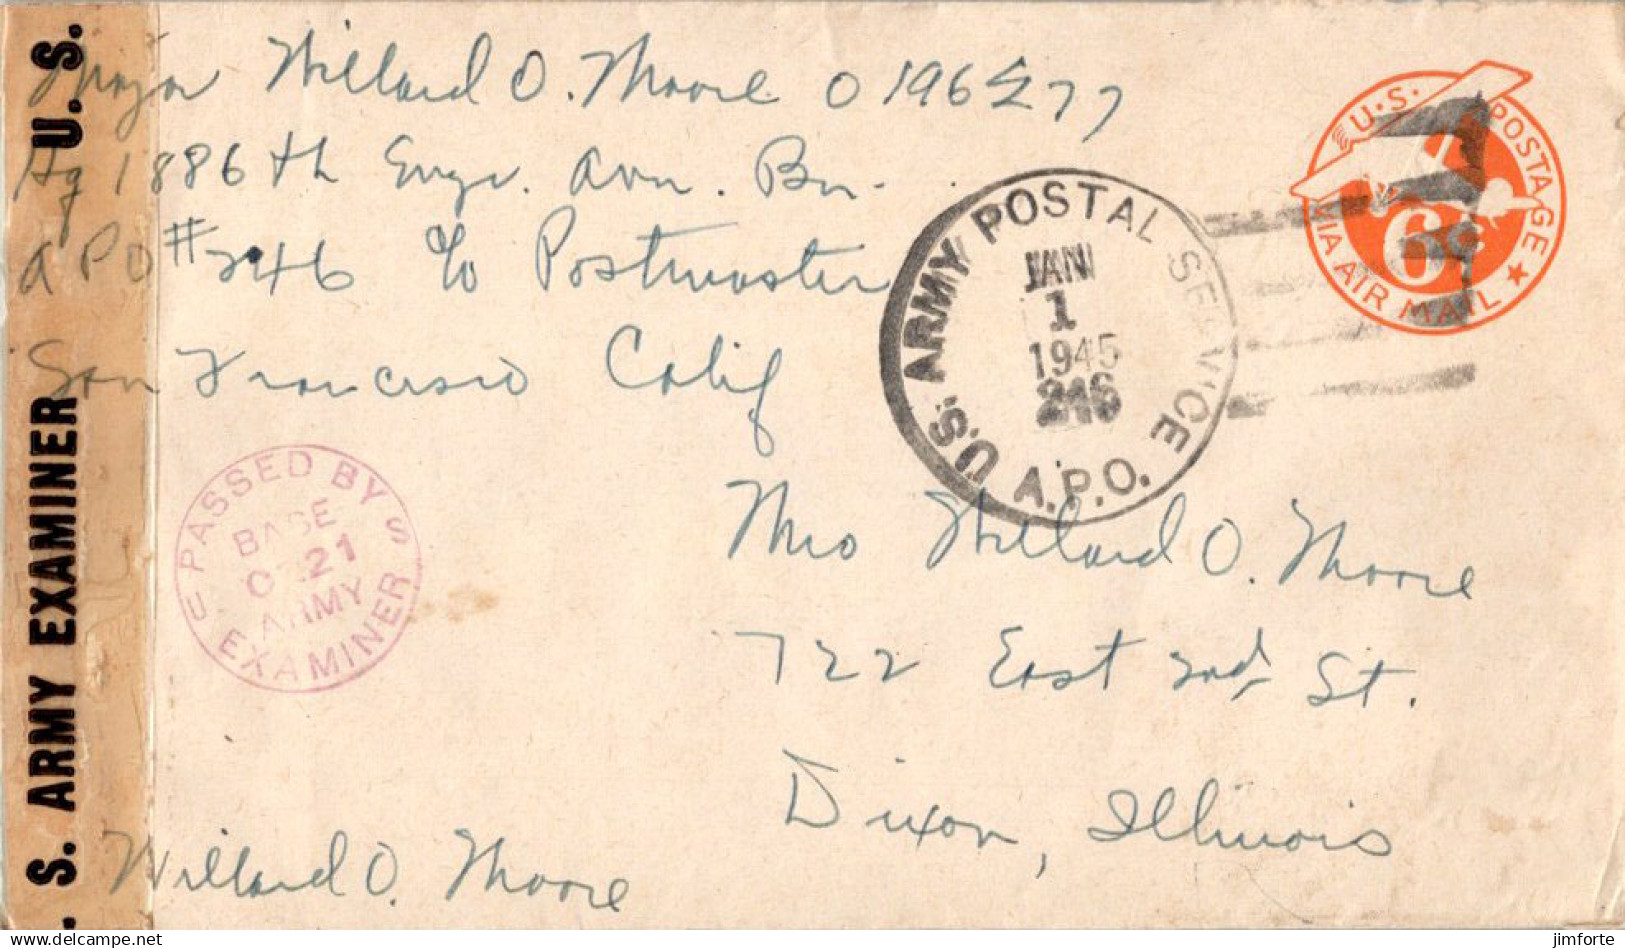 Major Willard O. Moore O 196477
Hq 1886th Engr. Avn. Bn.
APO #246 c/o Postmaster
San Francisco Calif
U. S.
S. ARMY EXAMINER
U.S. ARMY POSTAL SERVICE
JAN
1
1945
246
A.P.O.
U.S. POSTAGE
6c
VIA AIR MAIL
PASSED BY
BASE
0221
ARMY
EXAMINER
Mrs Willard O. Moore
722 East 2nd St.
Dixon, Illinois
Willard O. Moore
jimforte